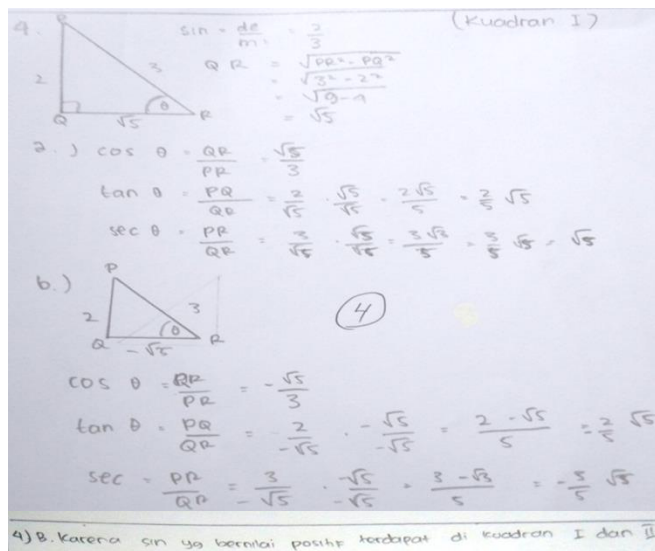 4. P (Kuadran I)
sin = de/mi = 2/3
2 3 QR = √PR² - PQ²
= √3² - 2²
= √9-4
= √5
θ
Q √5 R
a.) cos θ = QR/PR = √5/3
tan θ = PQ/QR = 2/√5 . √5/√5 = 2√5/5 = 2/5 √5
sec θ = PR/QR = 3/√5 . √5/√5 = 3√3/5 = 3/5 √5 = √5
b.) P
2 3 θ
Q -√5 R
4
cos θ = QR/PR = - √5/3
tan θ = PQ/QR = - 2/-√5 . - √5/-√5 = 2 -√5/5 = 2/5 √5
sec = PR/QR = 3/-√5 . -√5/-√5 = 3 -√3/5 = - 3/5 √5
4) B. Karena sin yg bernilai positif terdapat di kuadran I dan II